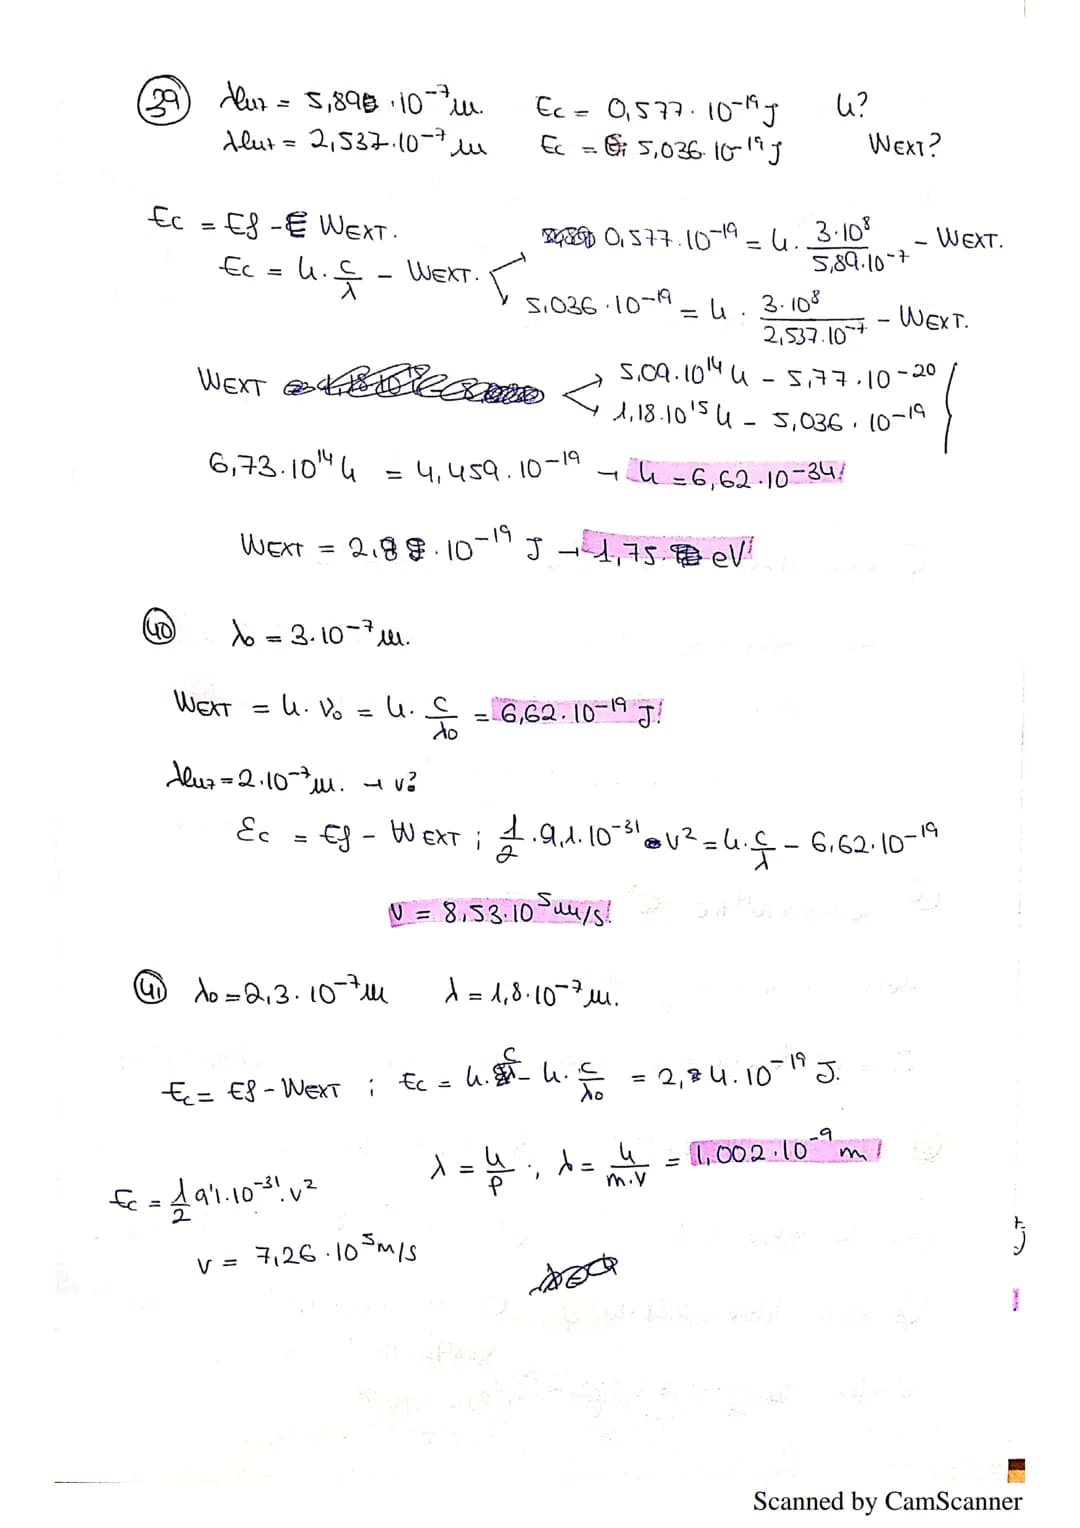 39 λluz = 5,89 · 10⁻⁷ m. Ec = 0,577 · 10⁻¹⁹ J h?
λluz = 2,537 · 10⁻⁷ m Ec = 5,036 · 10⁻¹⁹ J WEXT?
Ec = Ef - WEXT.
0,577 · 10⁻¹⁹ = h · 3·10⁸ / 5,89·10⁻⁷ - WEXT.
Ec = h · c/λ - WEXT.
5,036 · 10⁻¹⁹ = h · 3·10⁸ / 2,537·10⁻⁷ - WEXT.
WEXT
5,09 · 10¹⁴ h - 5,77 · 10⁻²⁰
1,18 · 10¹⁵ h - 5,036 · 10⁻¹⁹
6,73 · 10¹⁴ h = 4,459 · 10⁻¹⁹ → h = 6,62 · 10⁻³⁴!
WEXT = 2,8 · 10⁻¹⁹ J → 1,75 eV!
40 λ₀ = 3 · 10⁻⁷ m.
WEXT = h · ν₀ = h · c/λ₀ = 6,62 · 10⁻¹⁹ J!
λluz = 2 · 10⁻⁷ m. → v?
Ec = Ef - WEXT ; 1/2 · 9,1 · 10⁻³¹ · v² = h · c/λ - 6,62 · 10⁻¹⁹
v = 8,53 · 10⁵ m/s!
41 λ₀ = 2,3 · 10⁻⁷ m λ = 1,8 · 10⁻⁷ m.
Ec = Ef - WEXT ; Ec = h · c/λ - h · c/λ₀ = 2,4 · 10⁻¹⁹ J.
λ = h/p ; λ = h/m·v = 1,002 · 10⁻⁹ m!
Ec = 1/2 9'1 · 10⁻³¹ · v²
v = 7,26 · 10⁵ m/s
Scanned by CamScanner